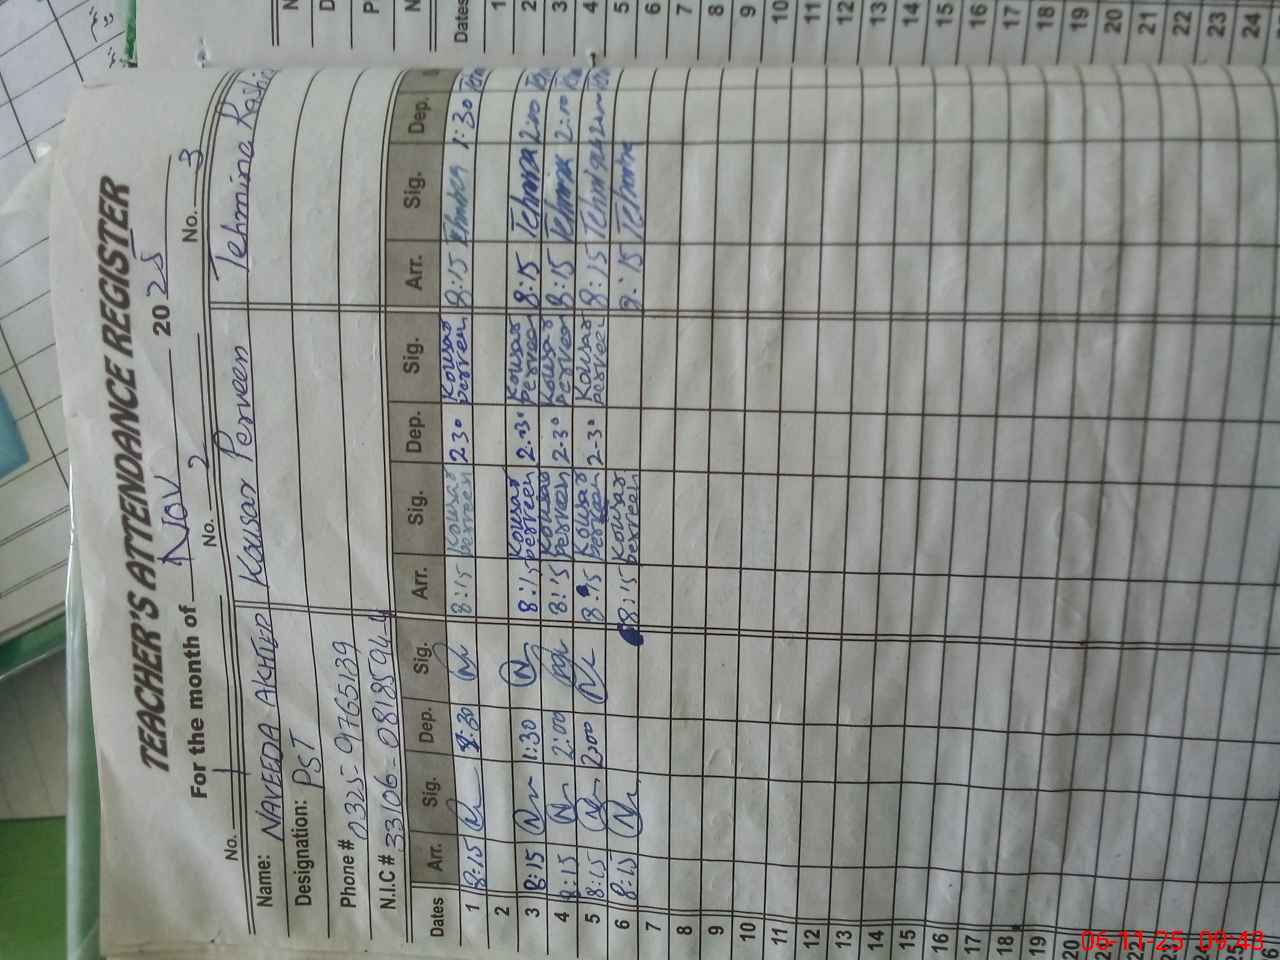 TEACHER'S ATTENDANCE REGISTER
For the month of Nov 2025
No. 1 No. 2 No. 3
Name: NAVEEDA AKHTER Kousar Perveen Tehmina Rashid
Designation: PST
Phone # 0325-9765139
N.I.C # 33106-0818594-4
Dates Arr. Sig. Dep. Sig. Arr. Sig. Dep. Sig. Arr. Sig. Dep.
1 8:15 1:30 8:15 Kousar perveen 2 30 Kousar perveen 8:15 Tehmina 1:30
2
3 8:15 1:30 8:15 Kousar perveen 2-30 Kousar perveen 8:15 Tehmina 2:00
4 8:15 2:00 8:15 Kousar perveen 2-30 Kousar perveen 8:15 Tehmina 2:00
5 8:15 2:00 8:15 Kousar perveen 2-30 Kousar perveen 8:15 Tehmina
6 8:15 8:15 Kousar perveen 8:15 Tehmina
7
8
9
10
11
12
13
14
15
16
17
18
19
20
21
22
23
24
25
Dates
1
2
3
4
5
6
7
8
9
10
11
12
13
14
15
16
17
18
19
20
21
22
23
24
06-11-25 09:43